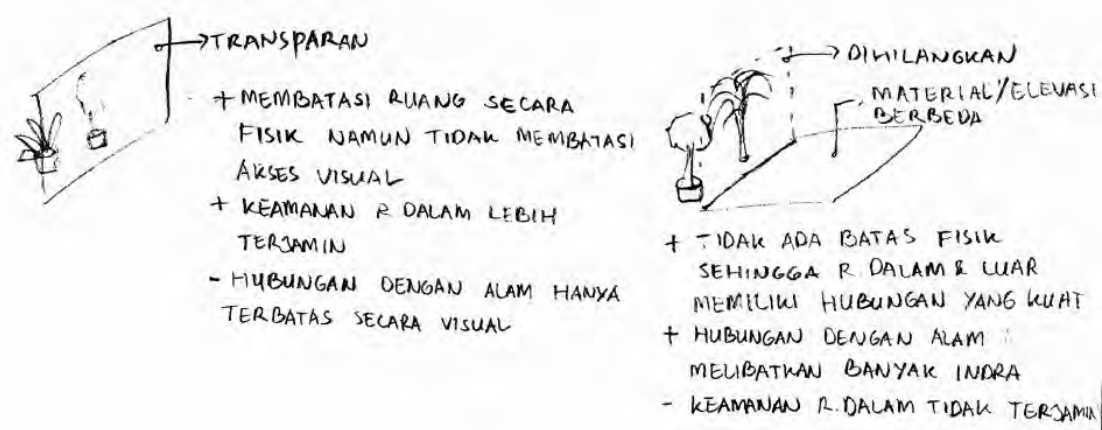 TRANSPARAN
+ MEMBATASI RUANG SECARA
FISIK NAMUN TIDAK MEMBATASI
AKSES VISUAL
+ KEAMANAN R DALAM LEBIH
TERJAMIN
- HUBUNGAN DENGAN ALAM HANYA
TERBATAS SECARA VISUAL
DIHILANGKAN
MATERIAL/ELEVASI
BERBEDA
+ TIDAK ADA BATAS FISIK
SEHINGGA R. DALAM & LUAR
MEMILIKI HUBUNGAN YANG KUAT
+ HUBUNGAN DENGAN ALAM
MELIBATKAN BANYAK INDRA
- KEAMANAN R. DALAM TIDAK TERJAMIN